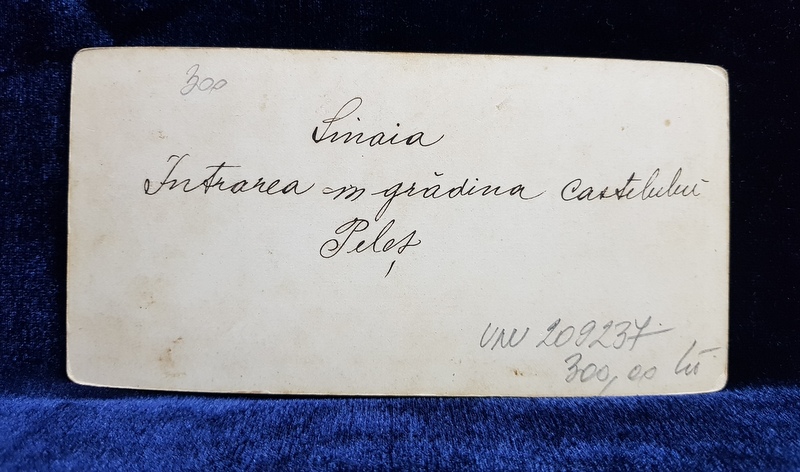 300
Sinaia
Intrarea in grădina castelului
Peleș
VNV 209237
300,00 lei